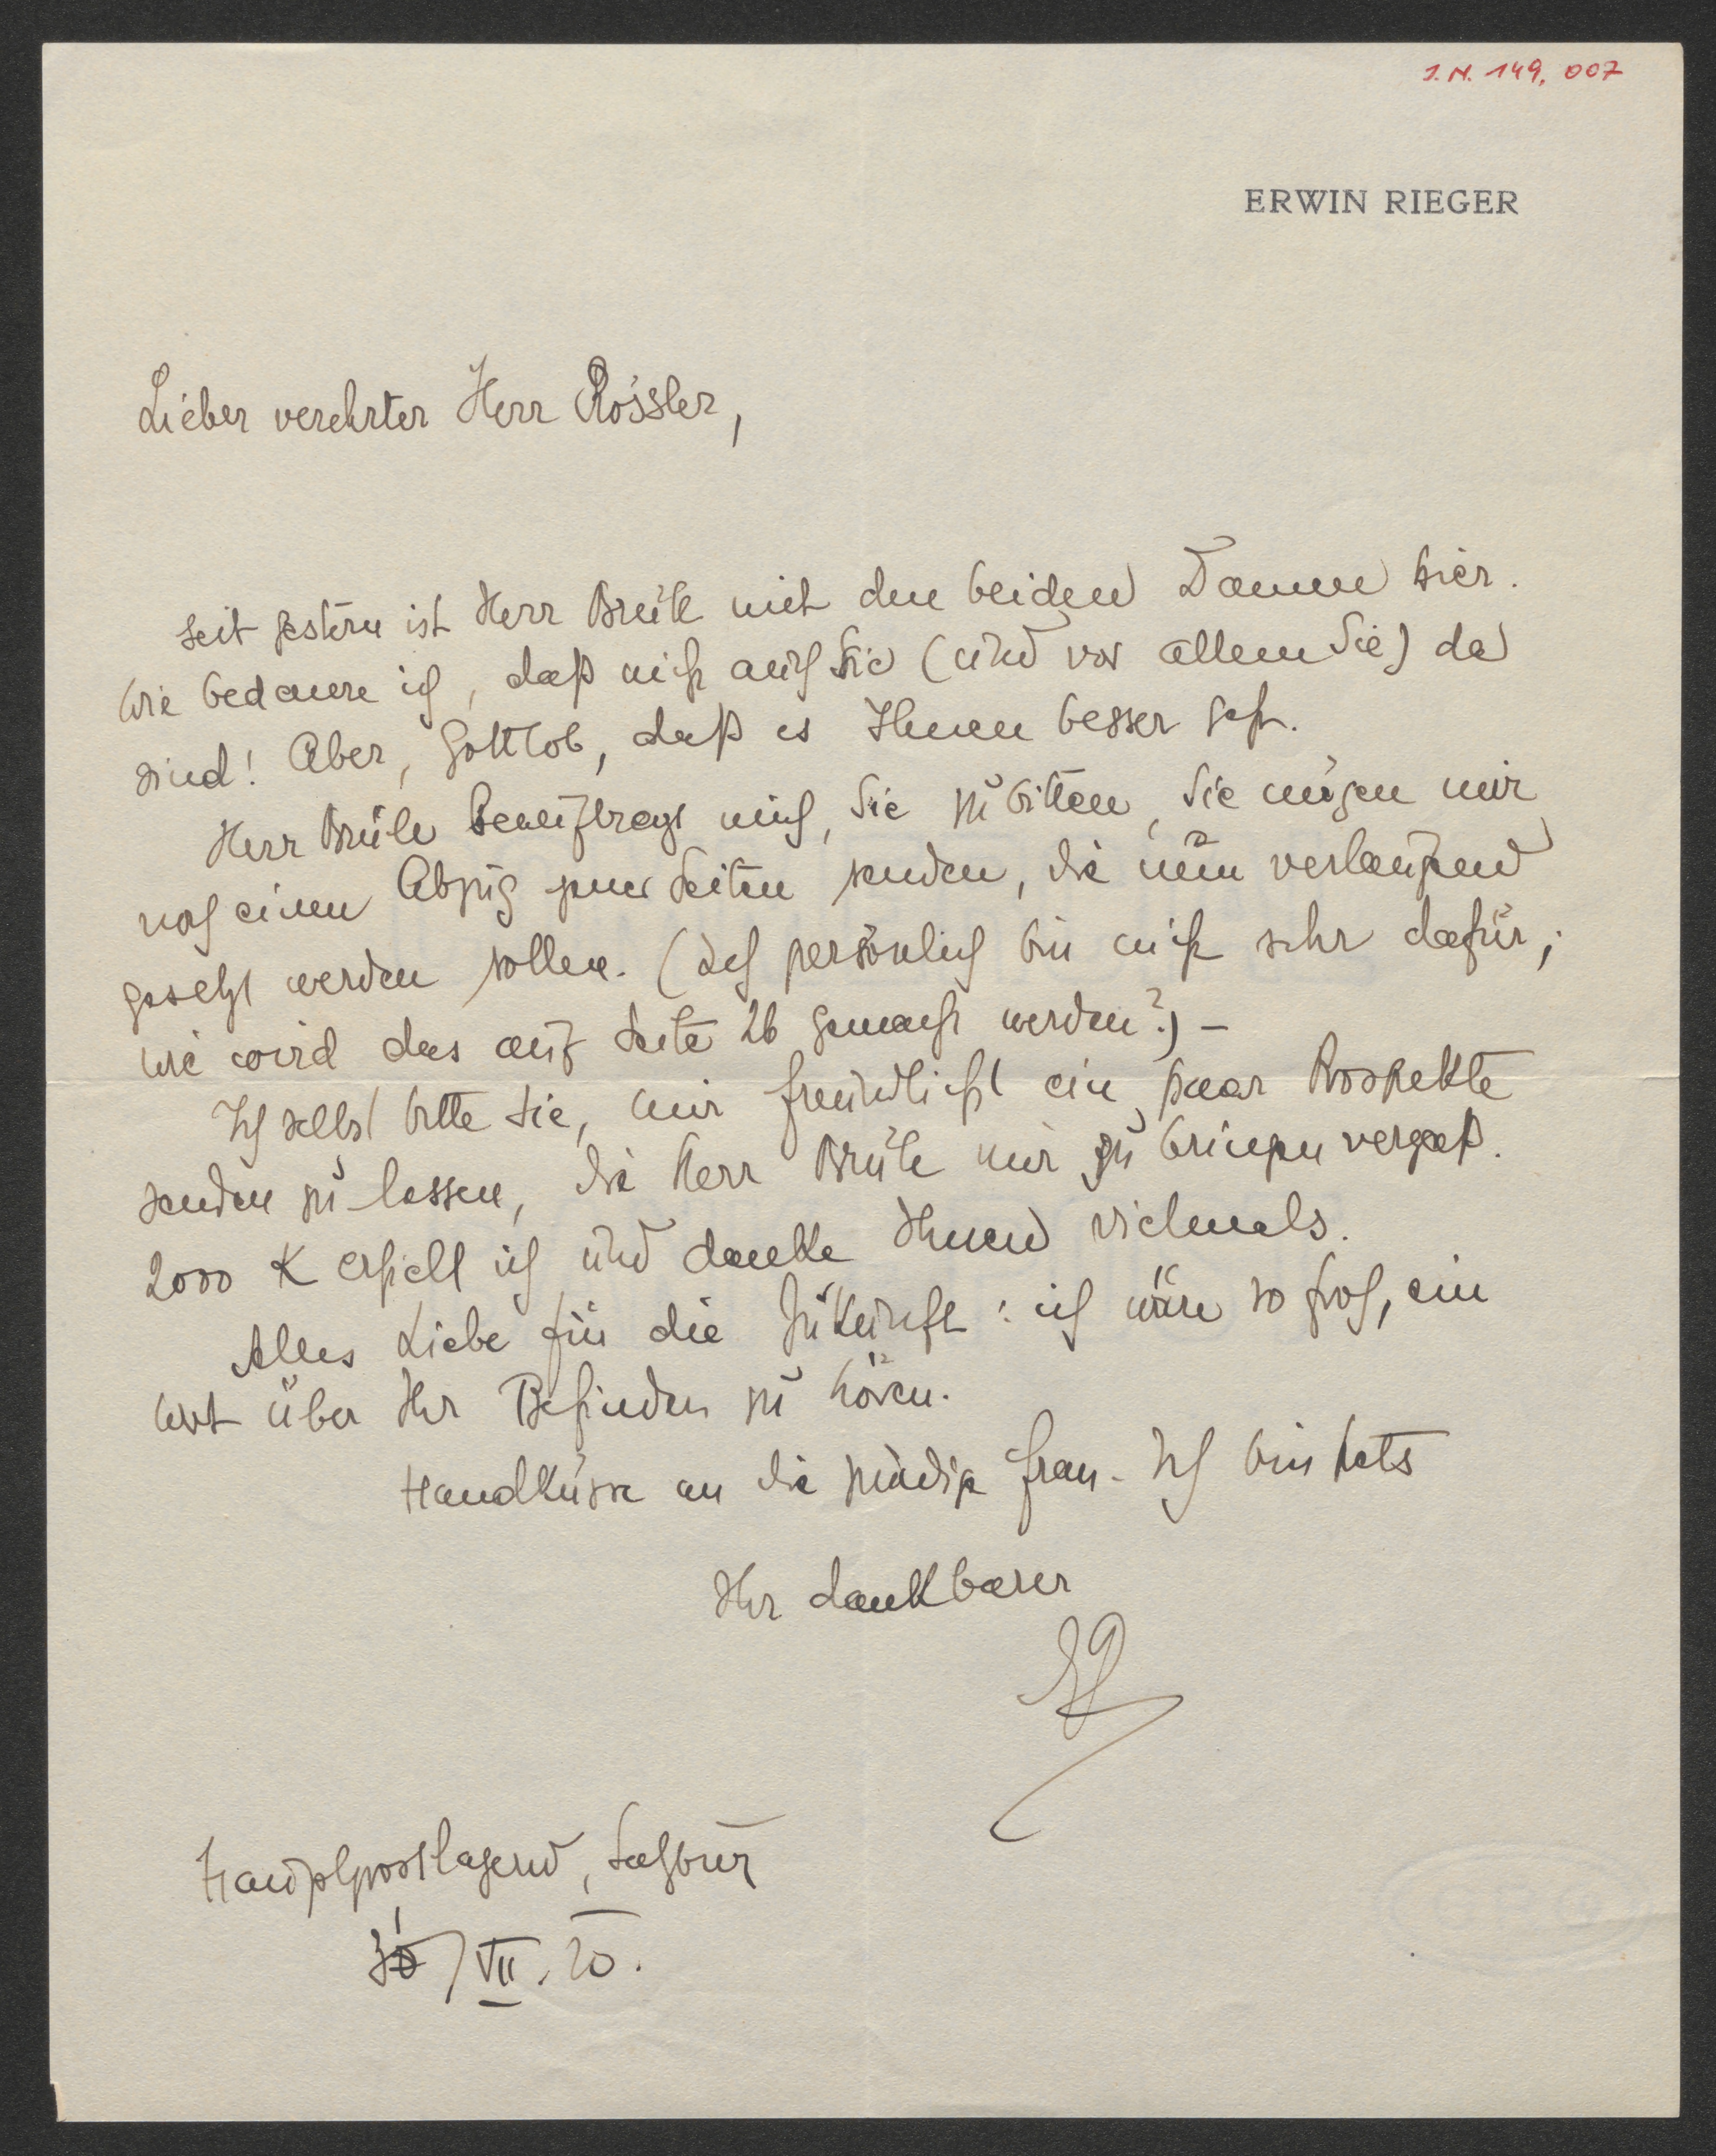 I.N. 149,007
ERWIN RIEGER
Lieber verehrter Herr Rössler,
seit gestern ist Herr Brüll mit den beiden Damen hier.
Wie bedauere ich, daß nicht auch Sie (und vor allem Sie) da
sind! Aber, Gottlob, daß es Ihnen besser geht.
Herr Brüll beauftragt mich, Sie zu bitten, Sie mögen mir
noch einen Abzug jener Seiten senden, die nun verlaufend
gesetzt werden sollen. (Ich persönlich bin nicht sehr dafür;
wie wird das auf Seite 26 gemacht werden?) –
Ich selbst bitte Sie, mir freundlichst ein paar Prospekte
senden zu lassen, die Herr Brüll mir zu bringen vergaß.
2000 K erhielt ich und danke Ihnen vielmals.
Alles Liebe für die Zukunft: ich wäre so froh, ein
Wort über Ihr Befinden zu hören.
Handküsse an die gnädige Frau. Ich bin stets
Ihr dankbarer
ER
Hauptpostlagernd, Salzburg
/VII. 20.